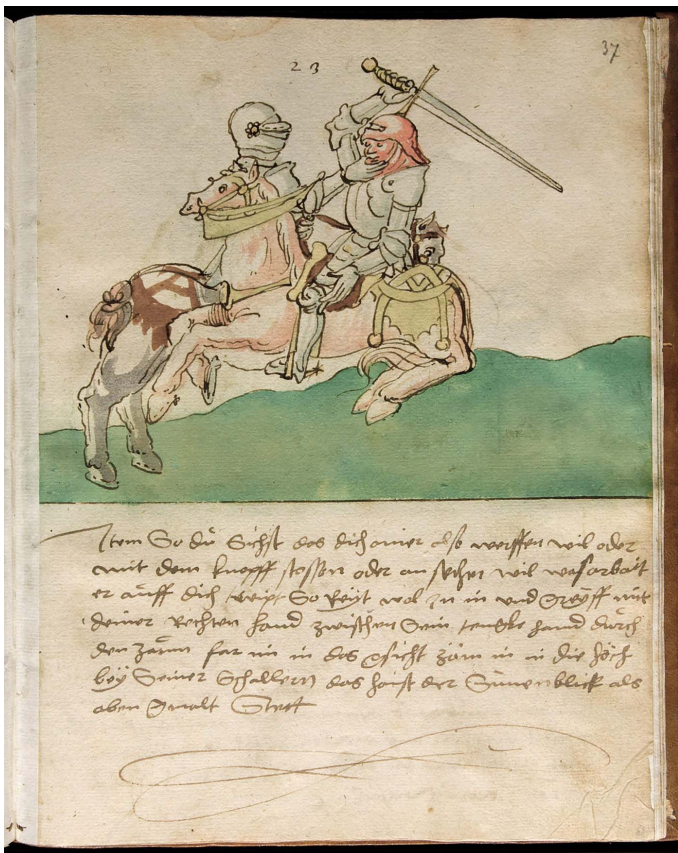 37
23
Item So dů Sichst das dich ainer also werffen wil oder
mit dem knopff stossen oder an wil was arbait
er auff dich treipt So Reÿt wol zu in und Greÿff mit
deiner Rechten hand zwischen Sein hand durch
den zaum far im in das gsicht zäm in in die höch
beÿ Seiner Schallern das haist der Sunenblick als
oben Gmalt Stett